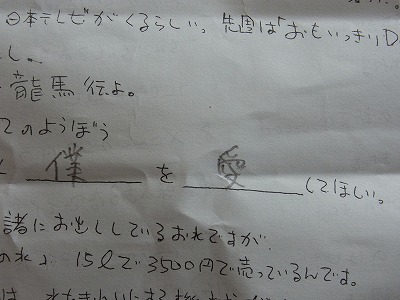 日本テレビがくるらしい。先週は「おもいっきりD
し。
龍馬伝よ。
てのようぼう
僕を愛してほしい。
諸にお出ししているお水ですが
の水」 15ℓで3500円で売っているんです。